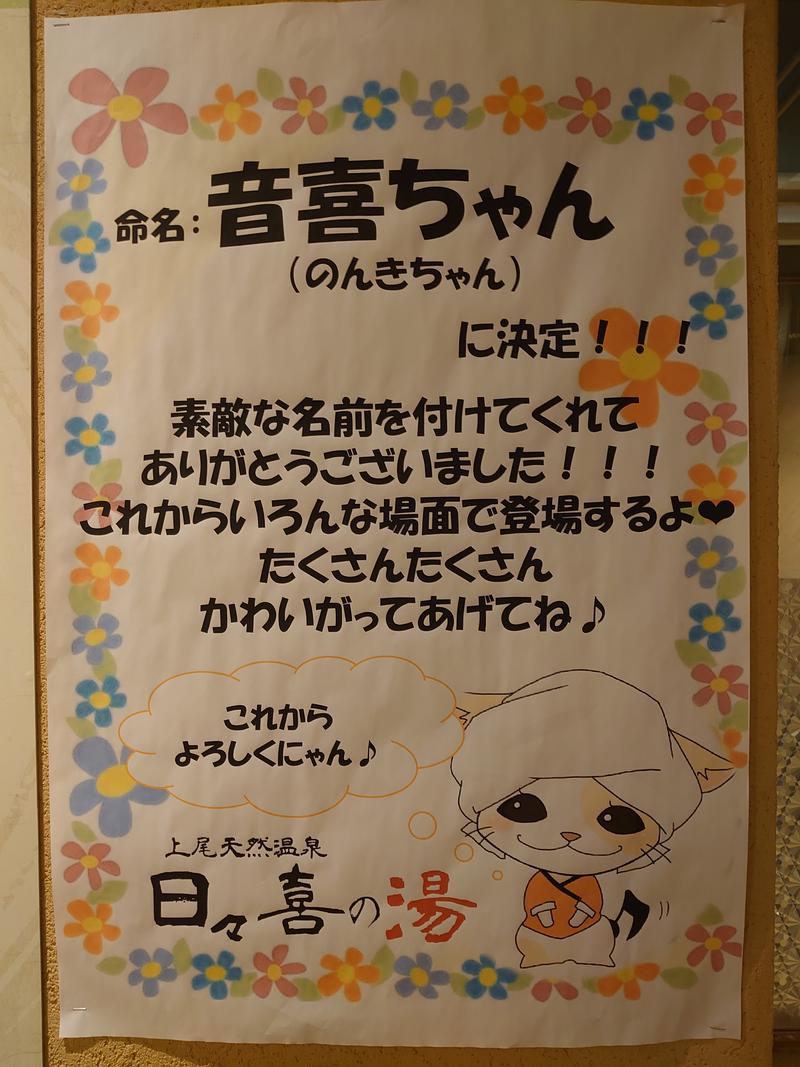 命名:音喜ちゃん
(のんきちゃん)
に決定！！！
素敵な名前を付けてくれて
ありがとうございました！！！
これからいろんな場面で登場するよ❤
たくさんたくさん
かわいがってあげてね♪
これから
よろしくにゃん♪
上尾天然温泉
日々喜の湯